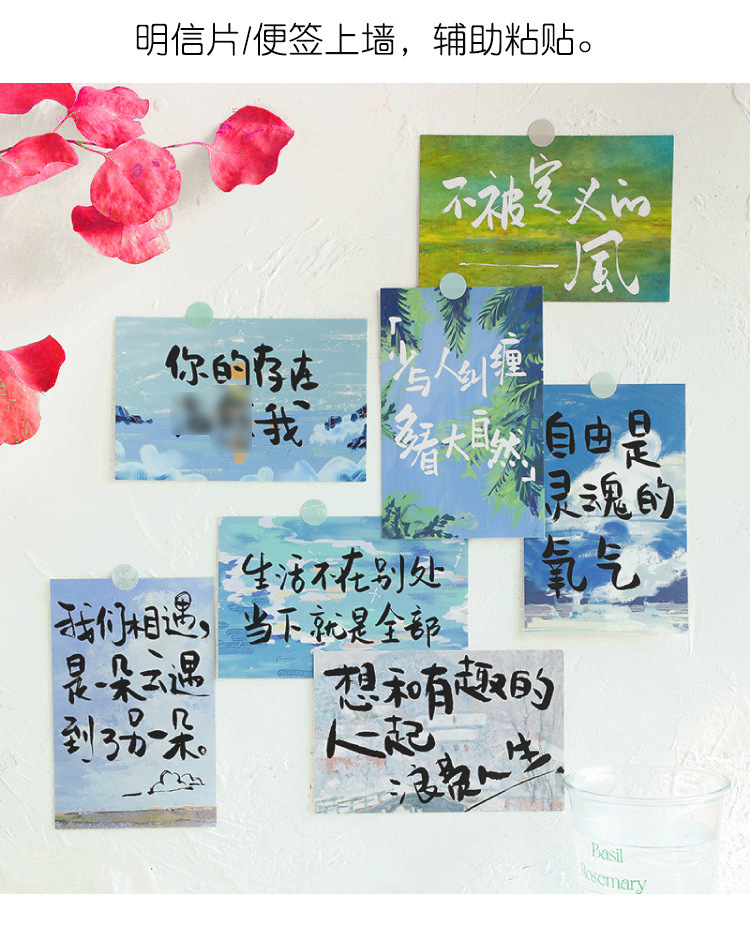 明信片/便签上墙，辅助粘贴。
不被定义的
——風
你的存在
我
「少与人纠缠
多看大自然」
自由是
灵魂的
氧气
生活不在别处
当下就是全部
我们相遇，
是一朵云遇
到了另一朵。
想和有趣的
人一起
浪费人生
Basil
Rosemary